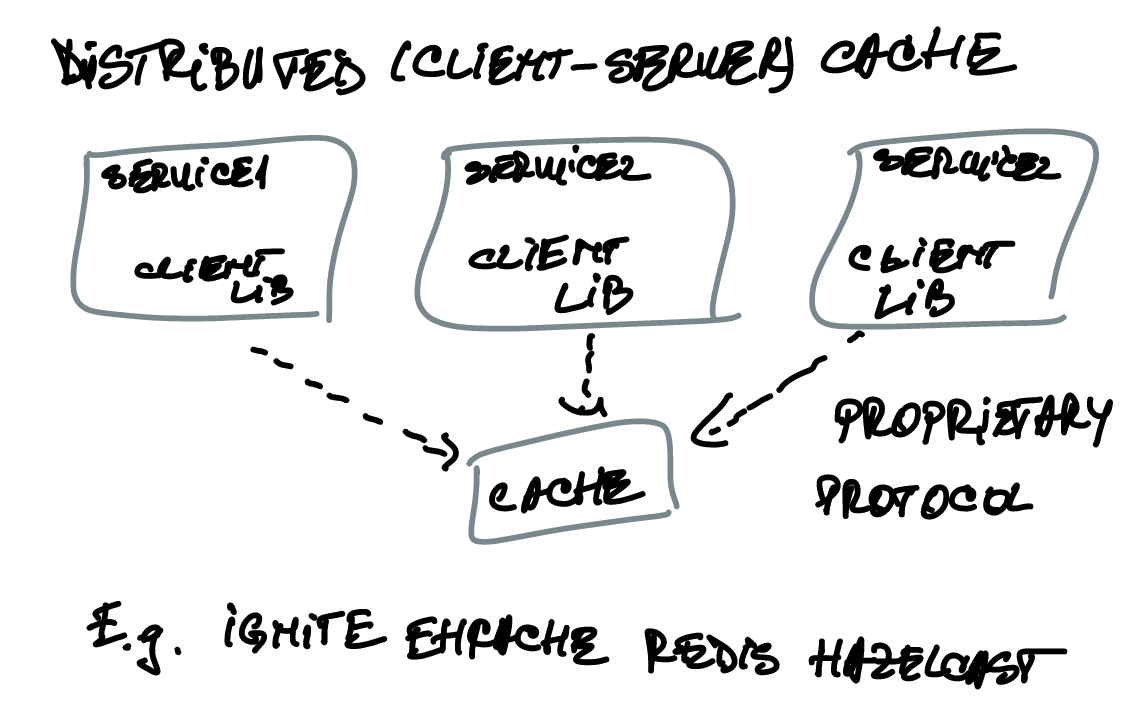 DISTRIBUTED (CLIENT-SERVER) CACHE
SERVICE1
CLIENT
LIB
SERVICE2
CLIENT
LIB
SERVICE2
CLIENT
LIB
PROPRIETARY
PROTOCOL
CACHE
E.g. IGNITE EHCACHE REDIS HAZELCAST